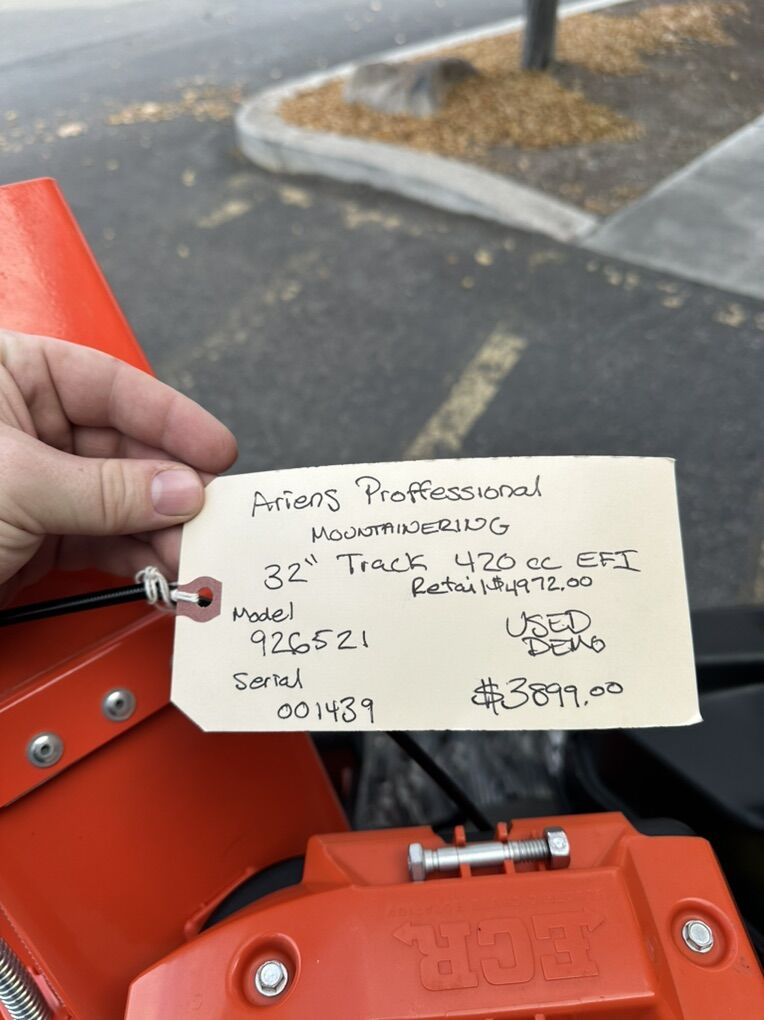 Ariens Proffessional
MOUNTAINERING
32" Track 420 cc EFI
Retail $4972.00
Model
926521
USED
DEMO
Serial
001439
$3899.00
ECR